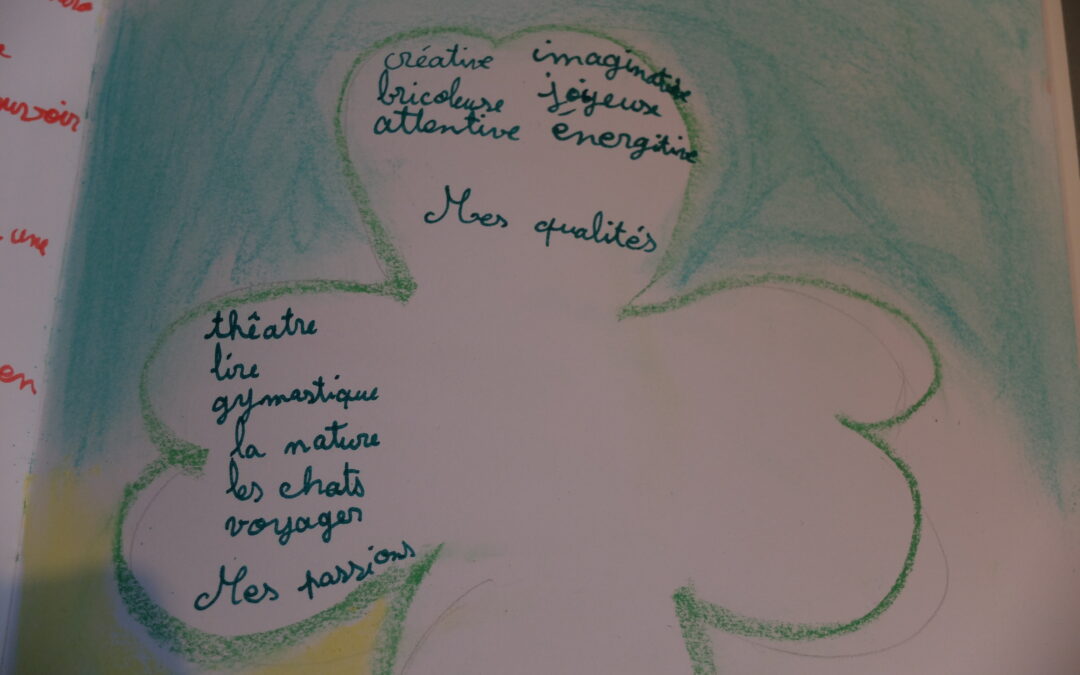 créative imaginative
bricoleuse joyeuse
attentive énergitive
Mes qualités
thêatre
lire
gymastique
la nature
les chats
voyager
Mes passions
une
en